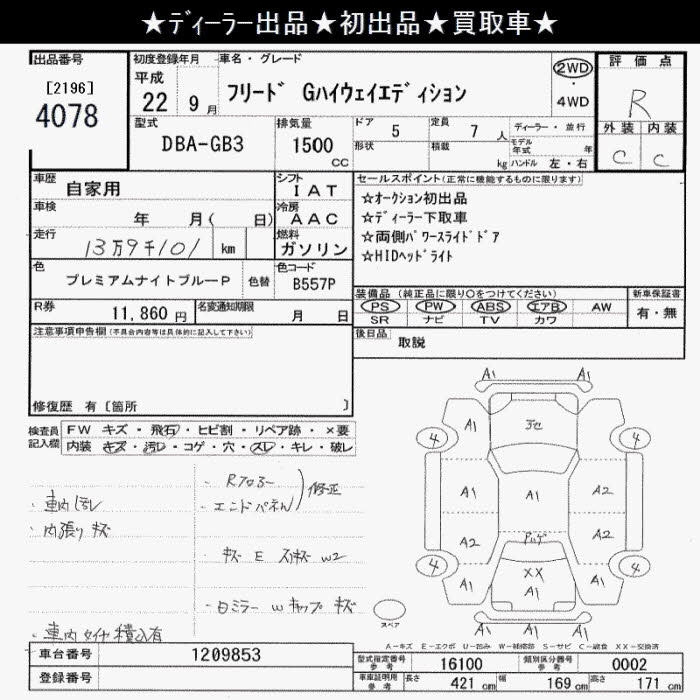 ★ﾃﾞｨｰﾗｰ出品★初出品★買取車★
出品番号
[2196]
4078
初度登録年月
平成
22 9月
車名・グレード
フリード Gハイウェイエディション
2WD
・
4WD
評価点
R
外装 内装
C C
型式
DBA-GB3
排気量
1500
CC
ドア
5
定員
7人
形状
積載
kg
ディーラー・並行
モデル年式 年
ハンドル 左・右
車歴
自家用
シフト
IAT
車検
年 月( 日)
冷房
AAC
走行
13万9千101 km
燃料
ガソリン
色
プレミアムナイトブルーP
色替
色コード
B557P
R券
11,860円
名変通知期限
月 日
セールスポイント(正常に機能するものに限ります)
☆オークション初出品
☆ディーラー下取車
☆両側パワースライドドア
☆HIDヘッドライト
装備品 (純正品に限り○をつけてください)
PS PW ABS エアB AW
SR ナビ TV カワ
新車保証書
有・無
後日品
取説
注意事項申告欄(不具合内容等は具体的に記入して下さい)
修復歴 有〔箇所 〕
検査員記入欄
FW キズ・飛石・ヒビ割・リペア跡・×要
内装 キズ・汚レ・コゲ・穴・スレ・キレ・破レ
・車内汚レ
・内張りキズ
・車内タイヤ積込有
・Rフロアー
・エンドパネル
修正
・キズ E スリキズ W2
・ロミラー Wキャップ キズ
A1 A1
A1
A1
4 4
A1 A1 A2
A2 A2
4 4
XX
A1 A1 A1
A1 A1 A1
スペア
A－キズ E－エクボ U－凹み W－補修跡 S－サビ C－腐食 XX－交換済
車台番号
1209853
登録番号
型式指定番号
参考
16100
類別区分番号
参考
0002
車両証明用
参考
長さ 421 cm
幅 169 cm
高さ 171 cm